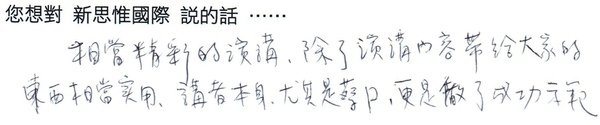 您想對 新思惟國際 說的話 ……
相當精彩的演講、除了演講內容帶給大家的
東西相當实用、講者本身、尤其是蔡P,更是做了成功示範